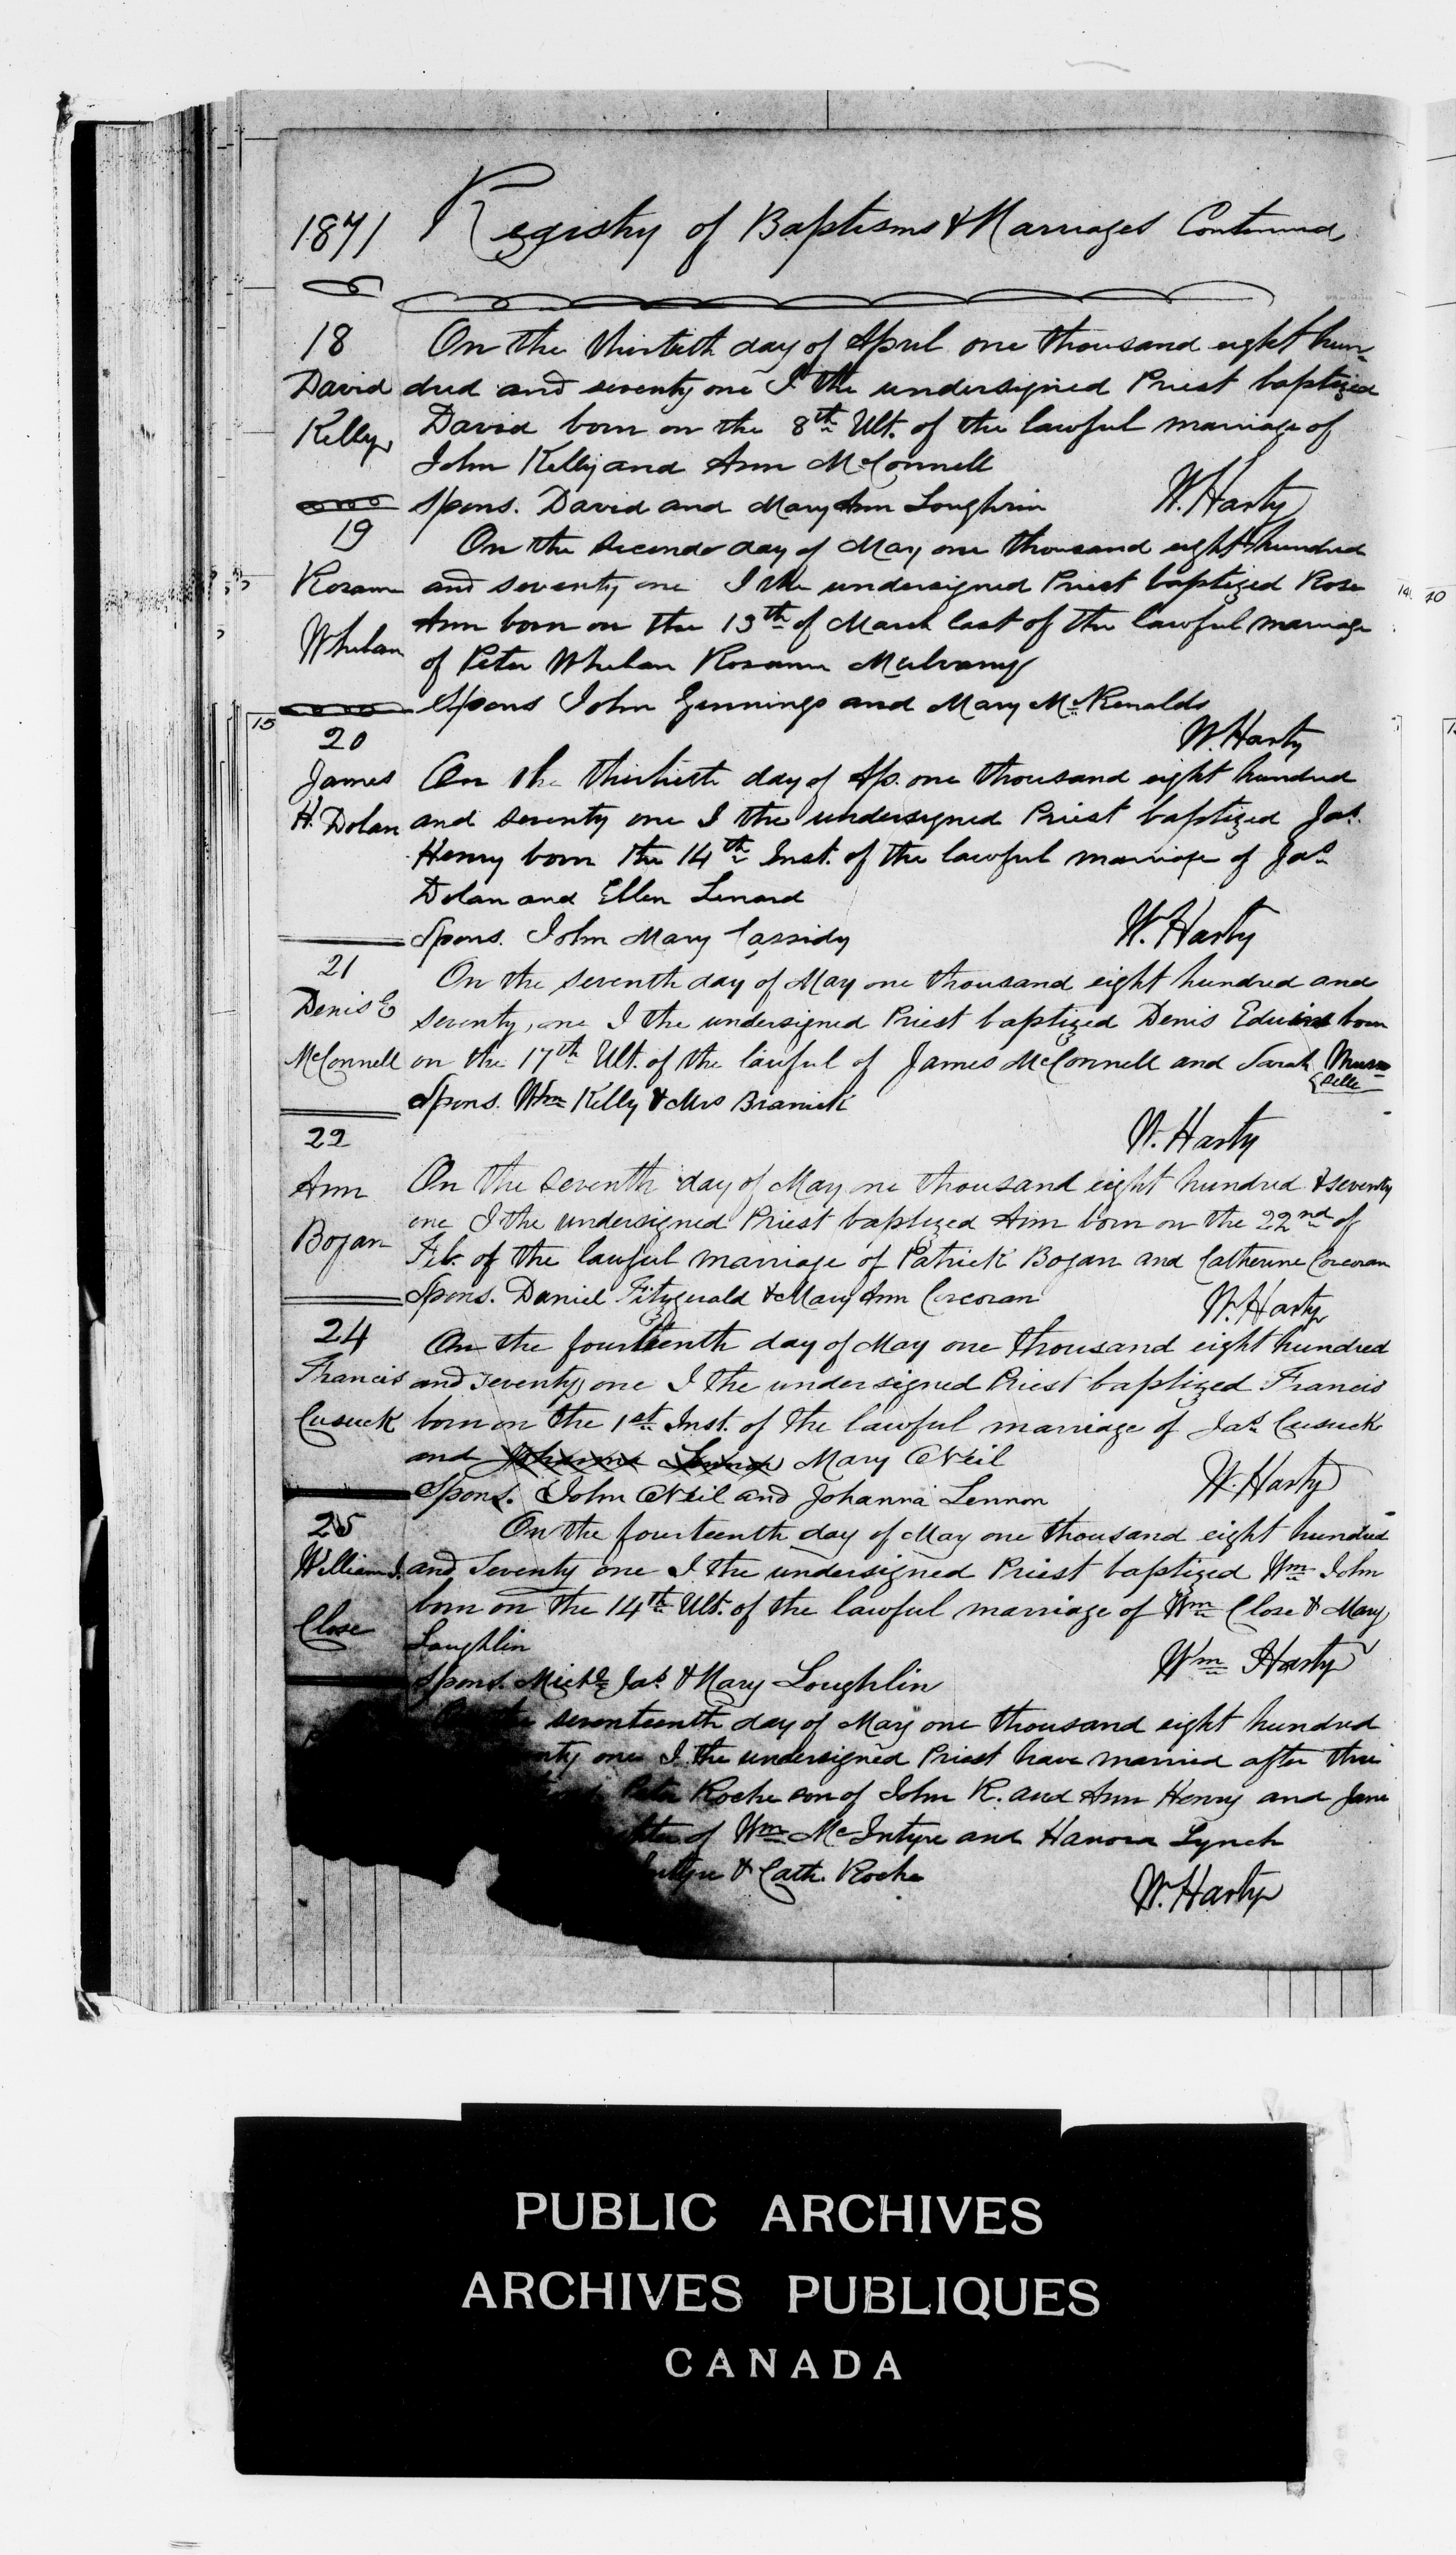 1871 Registry of Baptisms & Marriages Continued
18 On the thirtieth day of April one thousand eight hun-
David dred and seventy one I the undersigned Priest baptized
Kelly David born on the 8th Ult. of the lawful marriage of
John Kelly and Ann McConnell
Spons. David and Mary Ann Loughrin W. Harty
19 On the second day of May one thousand eight hundred
Rosann and seventy one I the undersigned Priest baptized Rose
Whelan Ann born on the 13th of March last of the lawful marriage
of Peter Whelan Rosann Mulvany
Spons John Jennings and Mary McRenalds
15
20 W. Harty
James On the thirtieth day of Ap. one thousand eight hundred
H. Dolan and seventy one I the undersigned Priest baptized Jas.
Henry born the 14th Inst. of the lawful marriage of Jas
Dolan and Ellen Lenard
Spons. John Mary Cassidy W. Harty
21 On the seventh day of May one thousand eight hundred and
Denis E seventy one I the undersigned Priest baptized Denis born
McConnell on the 17th Ult. of the lawful of James McConnell and Sarah
Spons. Wm Kelly & Mrs Branick
22 W. Harty
Ann On the seventh day of May one thousand eight hundred & seventy
one I the undersigned Priest baptized Ann born on the 22nd of
Bogan Feb. of the lawful marriage of Patrick Bogan and Catherine Corcoran
Spons. Daniel Fitzgerald & Mary Ann Corcoran W. Harty
24 On the fourteenth day of May one thousand eight hundred
Francis and seventy one I the undersigned Priest baptized Francis
Cusuck born on the 1st Inst. of the lawful marriage of Jas Cusuck
and Johanna Lennon Mary O'Neil
Spons. John O'Neil and Johanna Lennon W. Harty
25 On the fourteenth day of May one thousand eight hundred
William J. and Seventy one I the undersigned Priest baptized Wm John
born on the 14th Ult. of the lawful marriage of Wm Close & Mary
Close Loughlin Wm Harty
Spons. Michl Jas & Mary Loughlin
seventeenth day of May one thousand eight hundred
nty one I the undersigned Priest have married after three
Peter Roche son of John R. and Ann Henry and Jane
hter of Wm McIntyre and Hanora Lynch
ntyre & Cath. Roche
W. Harty
PUBLIC ARCHIVES
ARCHIVES PUBLIQUES
CANADA